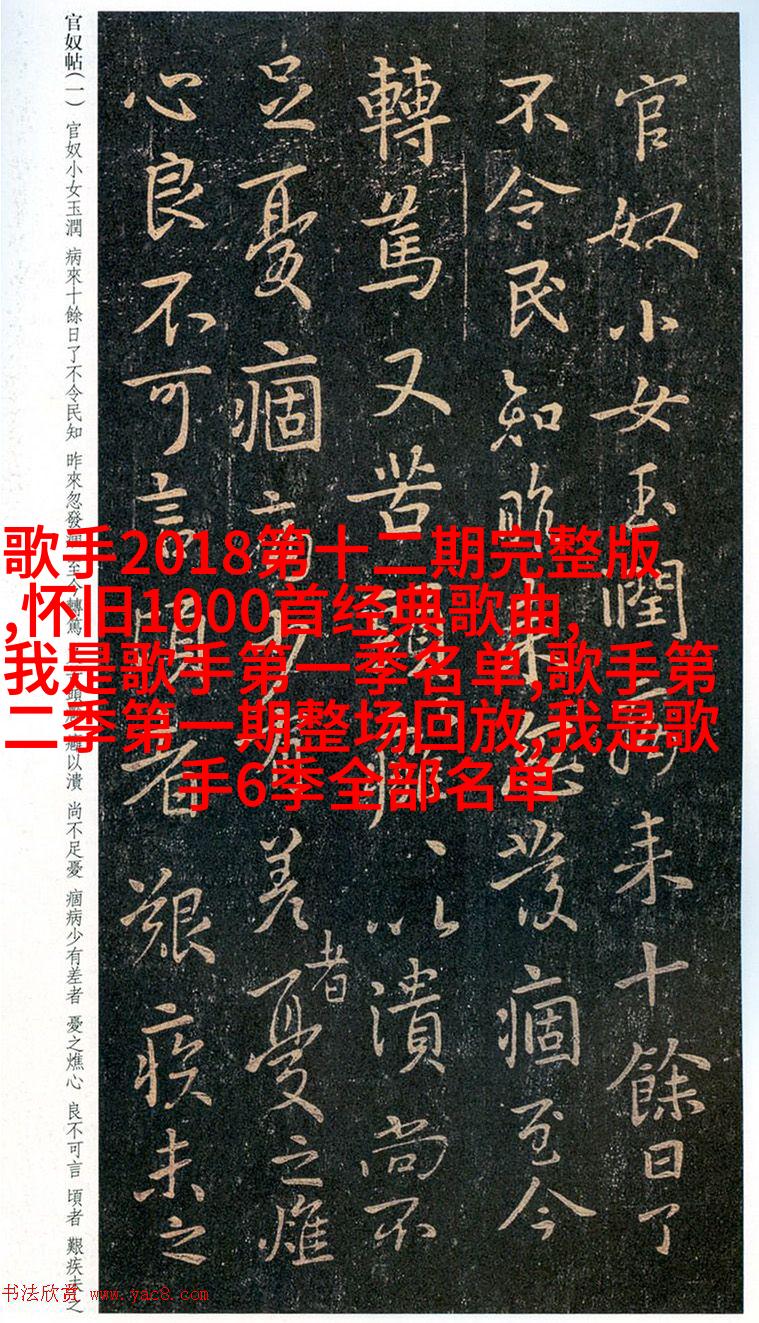 官奴帖(一) 官奴小女玉潤 病來十餘日了不令民知 昨來忽發痼至今轉篤 癰以潰 尚不足憂 痼病少有差者 憂之燋心 良不可言 頃者 艱疾未之
官奴小女玉潤病来十餘日了
不令民知昨来忽發痼至今
轉篤又苦頭癰、以潰尚不
足憂痼病少有差者憂之燋
心良不可言頃者艱疾未之
歌手2018第十二期完整版
,怀旧1000首经典歌曲,
我是歌手第一季名单,歌手第
二季第一期整场回放,我是歌
手6季全部名单
书法欣赏 www.yac8.com